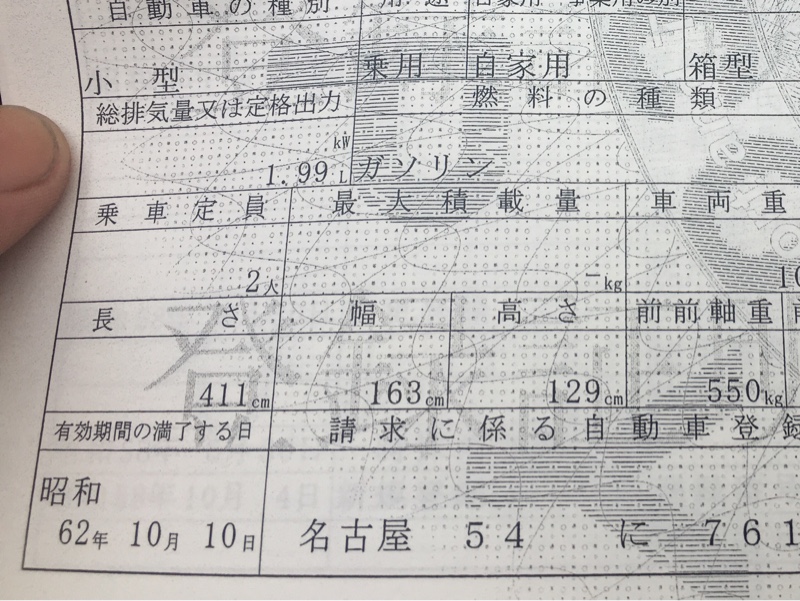 自動車の種別 用途 自家用・事業用の別
小型 乗用 自家用 箱型
総排気量又は定格出力 燃料の種類
kW
1.99 L ガソリン
乗車定員 最大積載量 車両重
2人 -kg 10
長さ 幅 高さ 前前軸重 前
411cm 163cm 129cm 550kg
有効期間の満了する日 請求に係る自動車登録
昭和
62年 10月 10日 名古屋 54 に 761